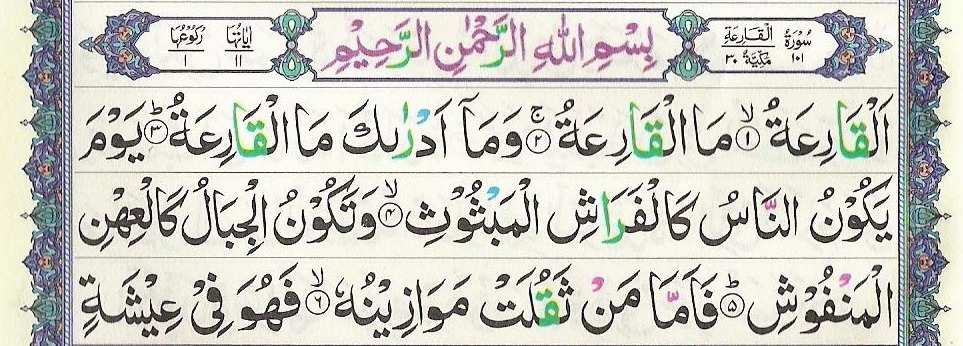 سُوْرَةُ الْقَارِعَةِ مَكِّيَّةٌ ١٠١ ٣٠
بِسْمِ اللهِ الرَّحْمٰنِ الرَّحِيْمِ
اٰيَاتُهَا ١١ رُكُوْعُهَا ١
اَلْقَارِعَةُ ۙ﴿١﴾ مَا الْقَارِعَةُ ۚ﴿٢﴾ وَمَاۤ اَدْرٰىكَ مَا الْقَارِعَةُ ؕ﴿٣﴾ يَوْمَ
يَكُوْنُ النَّاسُ كَالْفَرَاشِ الْمَبْثُوْثِ ۙ﴿٤﴾ وَتَكُوْنُ الْجِبَالُ كَالْعِهْنِ
الْمَنْفُوْشِ ؕ﴿٥﴾ فَاَمَّا مَنْ ثَقُلَتْ مَوَازِيْنُهٗ ۙ﴿٦﴾ فَهُوَ فِيْ عِيْشَةٍ